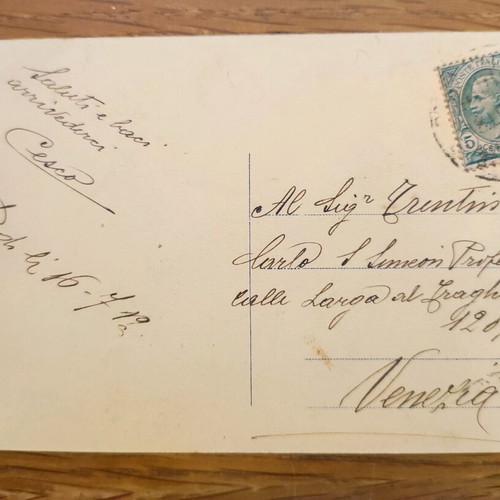 Saluti e baci
arrivederci
Cesco
li 16-7-12
POSTE ITALIANE
5
Al Sigr Trentin
Carlo S Simeon Profe
calle Larga al Tragh
Venezia